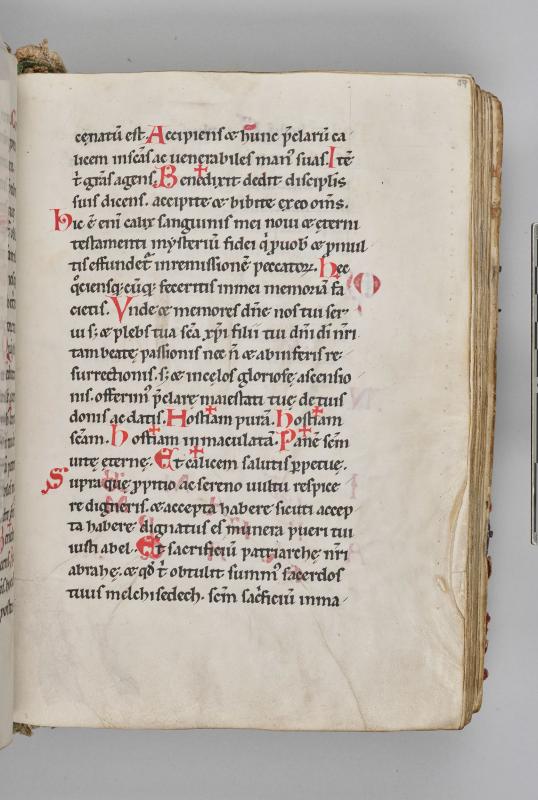 cęnatū est. Accipiens & hūnc p̄clarū ca
licem in sc̄as ac uenerabiles man᷒ suas. Itē
t̄ gr̄as agens. Benedixit dedit disciplis
suis dicens. accipite & bibite ex eo om̄s.
Hic ē eni calix sanguinis mei noui & ęterni
testamenti mẏsteriū fidei q̇ p uob̄ & p mul
tis effundet̄ in remissionē peccatoꝝ. Hęc
q̊ciensq; cūq; feceritis in mei memoriā fa
cietis. Vnde & memores dn̄e nos tui ser
ui s; & plebs tua sc̄a xp̄i filii tui dn̄i dī nr̄i
tam beatę passionis nec n̄ & ab inferis re
surrectionis. s; & in cęlos gloriosę ascensio
nis. offerim᷒ p̄clarę maiestati tuę de tuis
donis ac datis. Hostiam purā. Hostiam
sc̄am. Hostiam inmaculatā. Panē sc̄m
uitę ęternę. Et calicem salutis ppetuę.
Supra quę ppitio ac sereno uultu respice
re digneris. & accepta habere sicuti accep
ta habere dignatus es munera pueri tui
iusti abel. Et sacrificiū patriarchę nr̄i
abrahę. & qd̄ t̄ obtulit summ᷒ sacerdos
tuus melchisedech. sc̄m sac̍ficiū inma